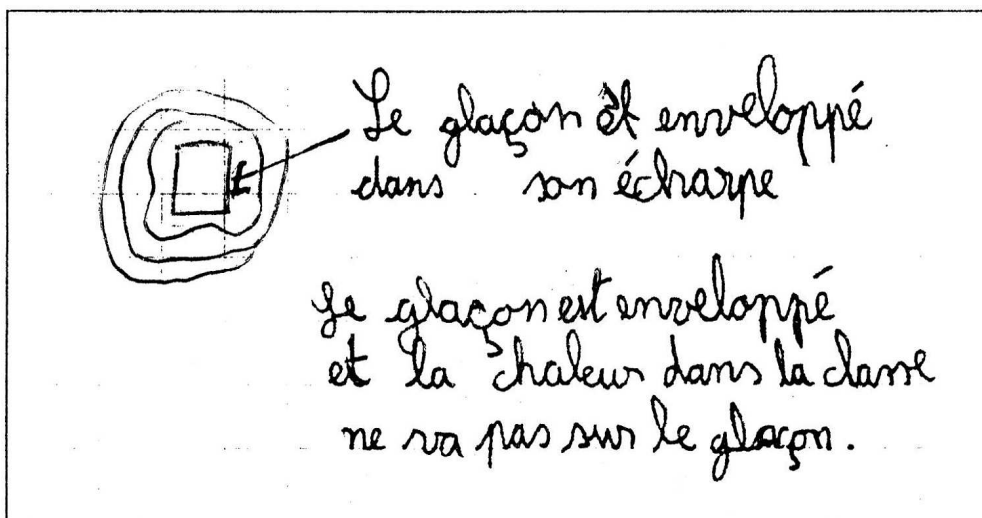 Le glaçon est enveloppé
dans son écharpe
Le glaçon est enveloppé
et la chaleur dans la classe
ne va pas sur le glaçon.